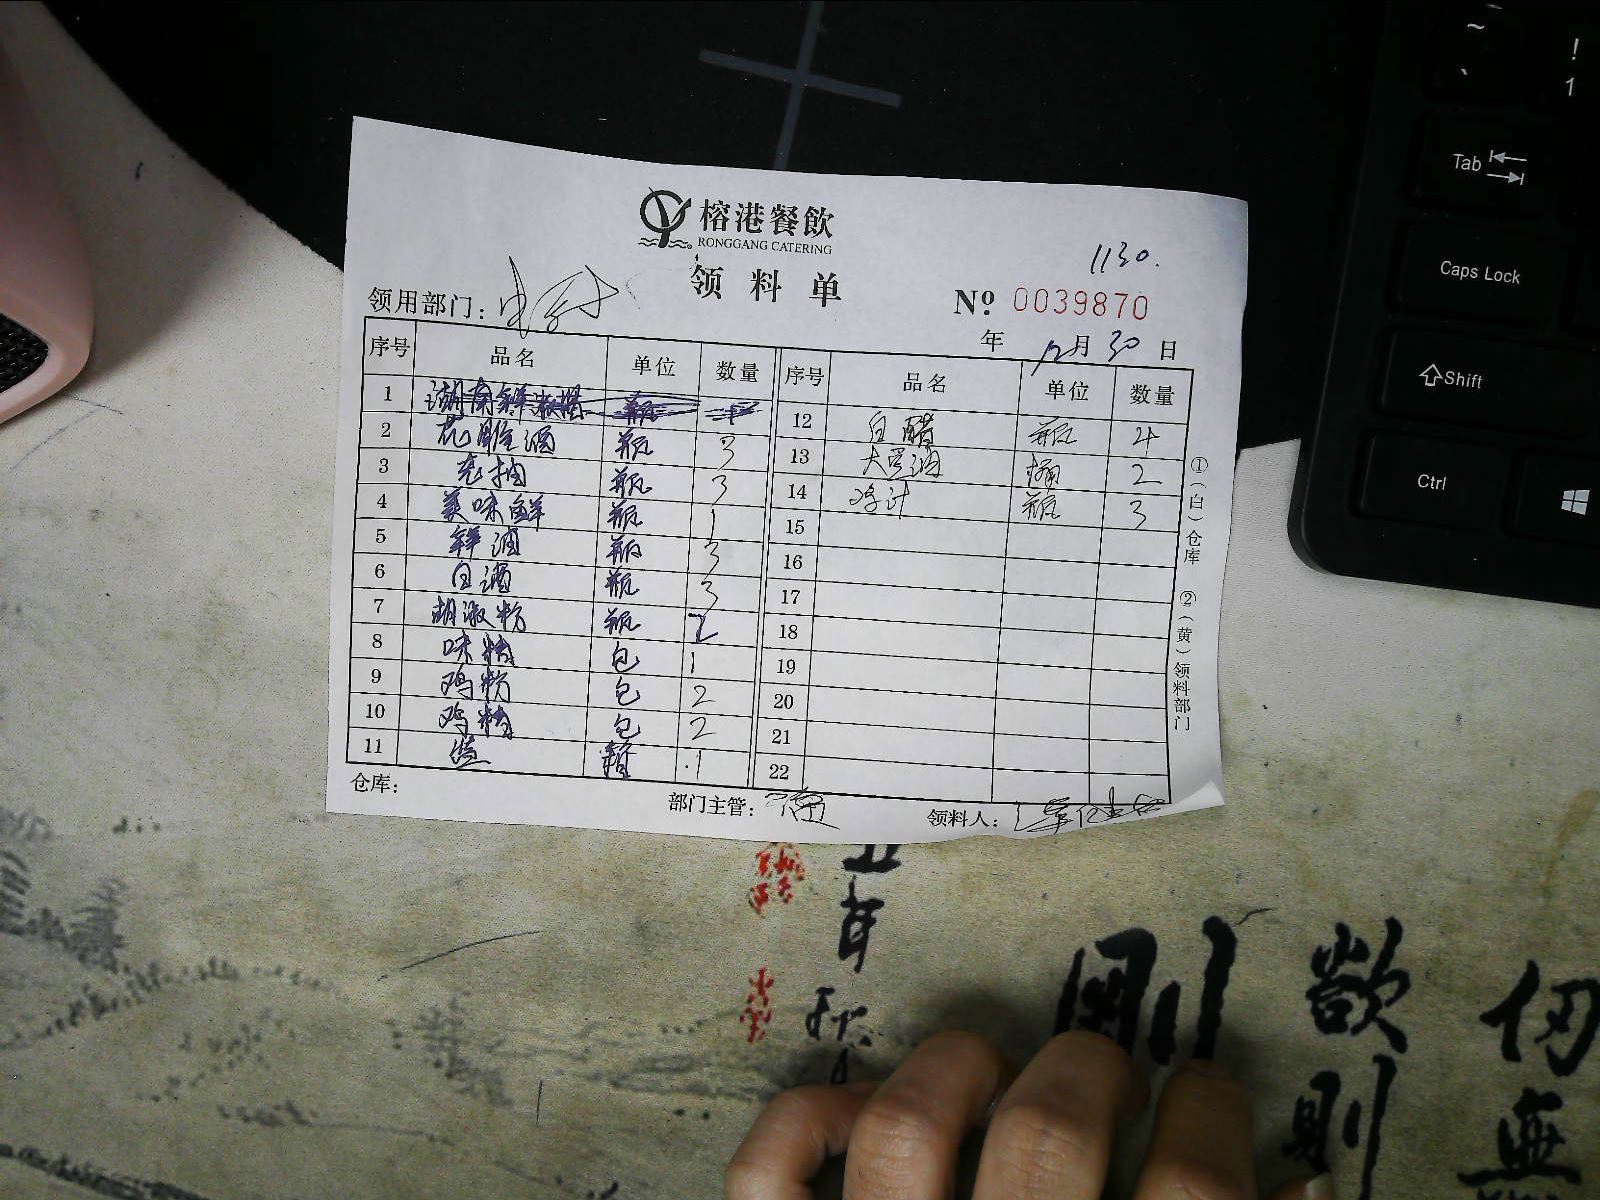 榕港餐飲
RONGGANG CATERING
领料单
1130.
领用部门：
№ 0039870
年 12月 30日
序号 品名 单位 数量 序号 品名 单位 数量
1 湖南鲜椒酱 瓶 12 白醋 瓶 4
2 花雕酒 瓶 3 13 大豆油 桶 2
3 老抽 瓶 3 14 鸡汁 瓶 3
4 美味鲜 瓶 1 15
5 鲜酒 瓶 3 16
6 白酒 瓶 3 17
7 胡淑粉 瓶 2 18
8 味精 包 1 19
9 鸡粉 包 2 20
10 鸡精 包 2 21
11 盐 箱 1 22
①（白）仓库 ②（黄）领料部门
仓库： 部门主管： 领料人：
Tab
Caps Lock
Shift
Ctrl
~
`
!
1
剛
欲
則
仞
無